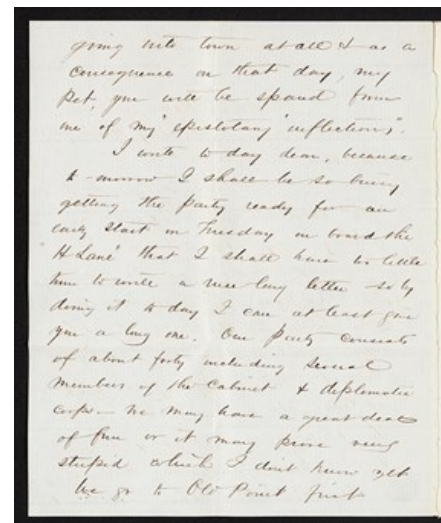 going into town at all & as a
consequence on that day, my
pet, you will be spared from
me of my "epistolary inflections".
I write to day dear, because
to-morrow I shall be so busy
getting the party ready for an
early start on Tuesday on board the
"H Lane" that I shall have too little
time to write a nice long letter so by
doing it to day I can at least give
you a long one. Our Party consists
of about forty including several
members of the Cabinet & diplomatic
corps - We may have a great deal
of fun or it may prove very
stupid which I dont know yet
We go to Old Point first